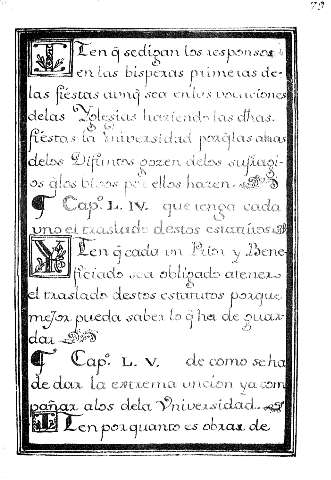 79
Iten q̃ se digan los responsos
en las bisperas primeras de-
las fiestas aunq̃ sea en las vocaciones
delas Yglesias haziendo las dhas.
fiestas la Vniversidad porq̃ las almas
delos Difuntos gozen delos sufragi-
os q̃ los bivos por ellos hazen.
¶ Cap.º L. IV. que tenga cada
uno el traslado destos estatutos
Yten q̃ cada un Prior y Bene-
ficiado sea obligado a tener
el traslado destos estatutos porque
mejor pueda saber lo q̃ ha de guar-
dar
¶ Cap.º L. V. de como se ha
de dar la extrema uncion ya com
pañar a los dela Vniversidad.
Iten por quanto es obrar de